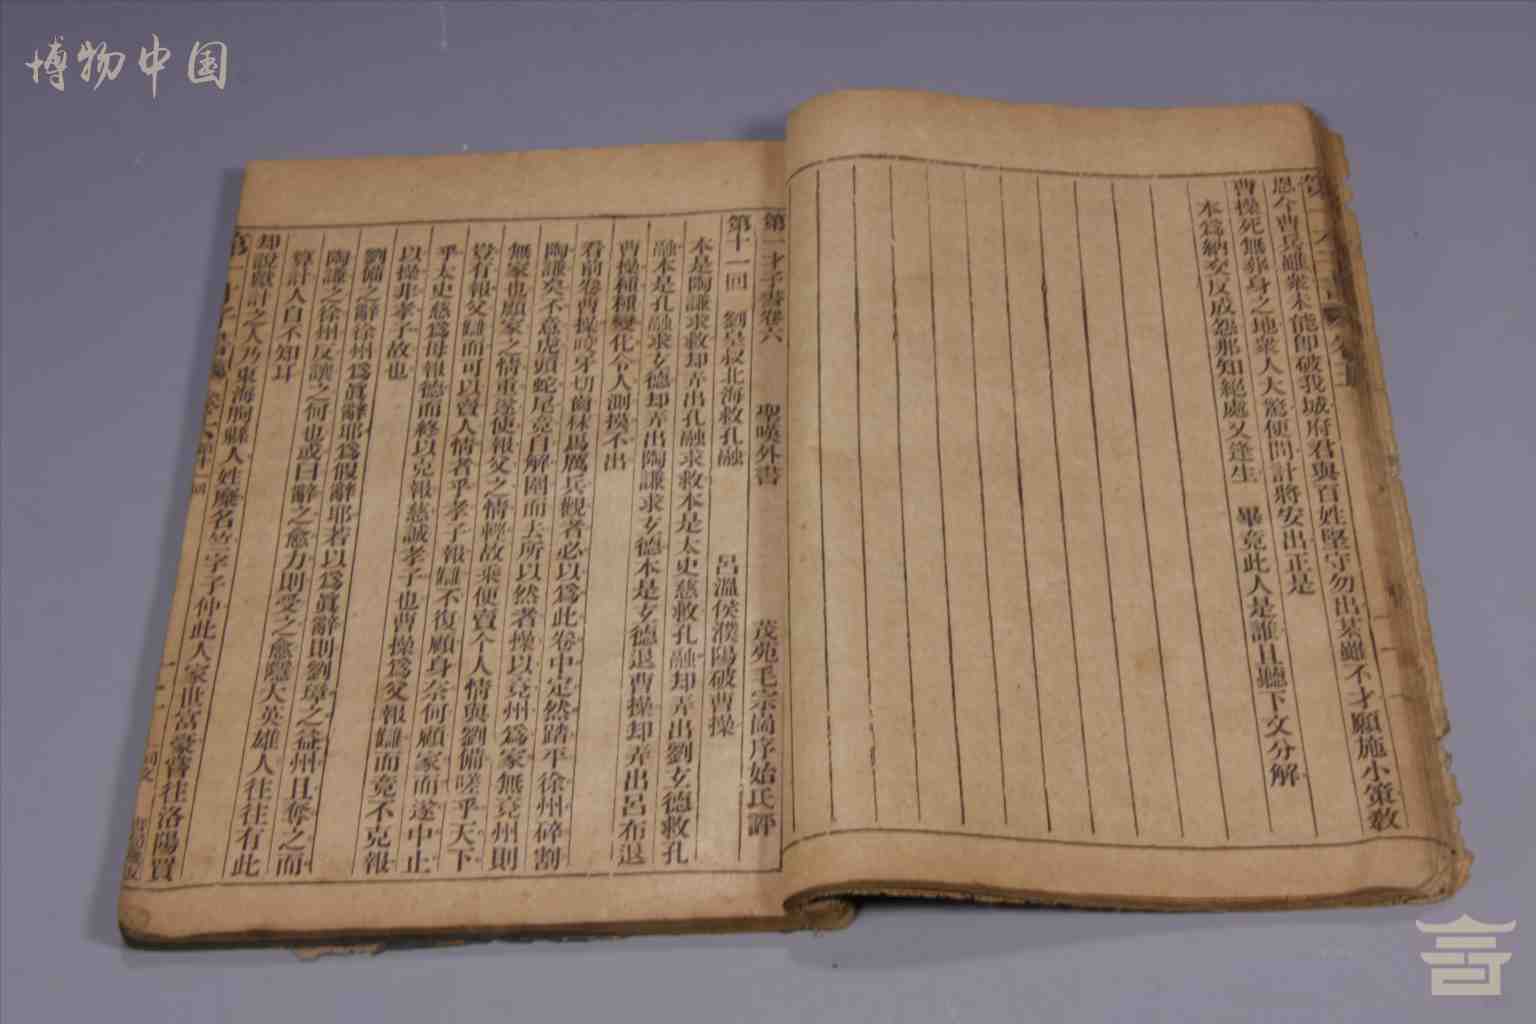 博物中国
恩今曹兵雖衆未能卽破我城府君與百姓堅守勿出某雖不才願施小策教
曹操死無葬身之地衆人大驚便問計將安出正是
本爲納交反成怨那知絕處又逢生 畢竟此人是誰且聽下文分解
第一才子書卷六 聖嘆外書 茂苑毛宗崗序始氏評
第十一回 劉皇叔北海救孔融 呂溫侯濮陽破曹操
本是陶謙求救却弄出孔融求救本是太史慈救孔融却弄出劉玄德救孔
融本是孔融求玄德却弄出陶謙求玄德本是玄德退曹操却弄出呂布退
曹操種種變化令人測摸不出
看前卷曹操咬牙切齒秣馬厲兵觀者必以爲此卷中定然踏平徐州碎割
陶謙矣不意虎頭蛇尾竟自解圍而去所以然者操以兗州爲家無兗州則
無家也顧家之情重遂使報父之情輕故乘便賣个人情與劉備嗟乎天下
豈有報父讎而可以賣人情者乎孝子報讎不復顧身奈何顧家而遂中止
乎太史慈爲母報德而終以克報慈誠孝子也曹操爲父報讎而竟不克報
以操非孝子故也
劉備之辭徐州爲眞辭耶爲假辭耶若以爲眞辭則劉璋之益州且奪之而
陶謙之徐州反讓之何也或曰辭之愈力則受之愈隱大英雄人往往有此
算計人自不知耳
却說獻計之人乃東海朐縣人姓糜名竺字子仲此人家世富豪嘗往洛陽買